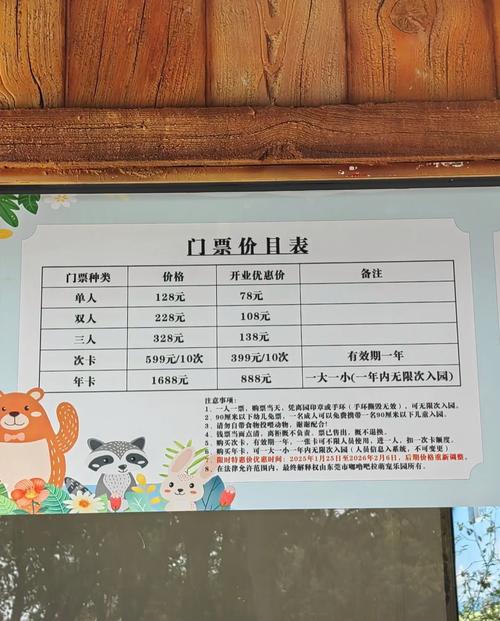 门票价目表
门票种类 价格 开业优惠价 备注
单人 128元 78元
双人 228元 108元
三人 328元 138元
次卡 599元/10次 399元/10次 有效期一年
年卡 1688元 888元 一大一小(一年内无限次入园)
注意事项:
1、一人一票,购票当天,凭离园印章或手环(手环撕毁无效),可无限次入园。
2、90厘米以下幼儿免票,一名成人可以免费携带一名90厘米以下儿童入园。
3、请勿自带食物投喂动物,谢谢配合!
4、钱票当面点清,离柜概不负责,票已售出,概不退换。
5、购买次卡,有效期一年,一张卡可不限人员使用,进一人,扣一次卡额度。
6、购买年卡,可一大一小一年内无限次入园(人员信息入系统,不可变更)
7、限时特惠价优惠时间:2025年1月25日至2026年2月6日,后期价格重新调整。
8、在法律允许范围内,最终解释权由东莞市嘟噜吧拉萌宠乐园所有。